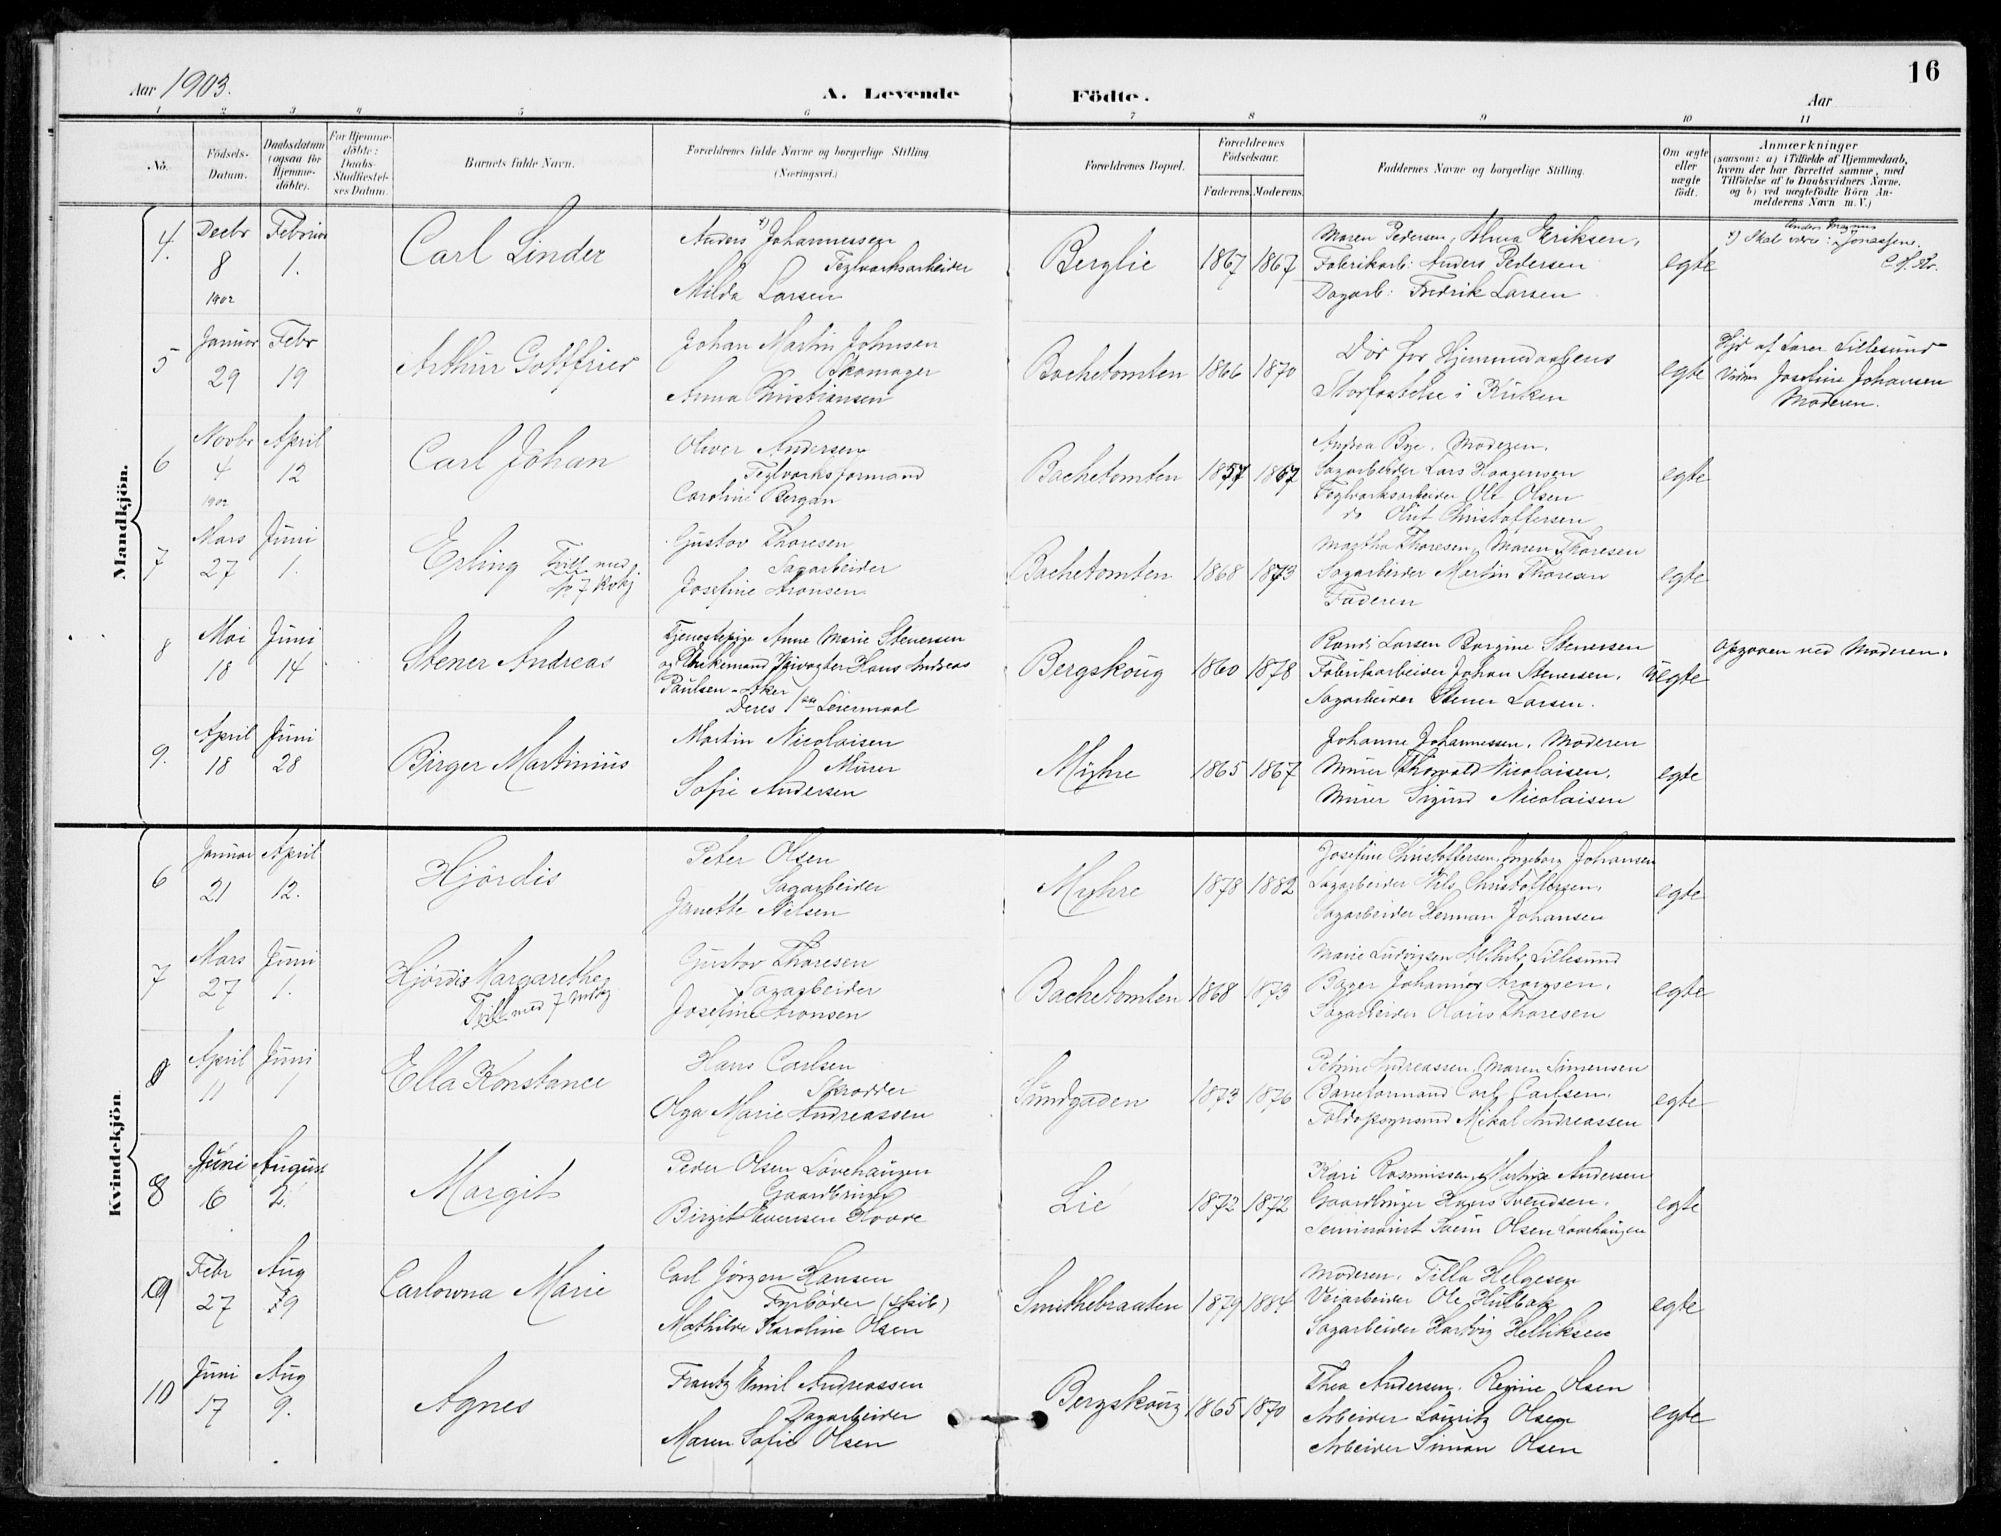 Aar 1903.
A. Levende Födte.
Aar
16
1 2 3 4 5 6 7 8 9 10 11
No.
Födsels-Datum.
Daabsdatum (ogsaa for Hjemme-döbte).
For Hjemme-döbte: Daabs-Stadfæstel-ses Datum.
Barnets fulde Navn.
Forældrenes fulde Navne og borgerlige Stilling. (Næringsvei.)
Forældrenes Bopæl.
Forældrenes Födselsaar.
Faderens. Moderens.
Faddernes Navne og borgerlige Stilling.
Om ægte eller uægte födt.
Anmærkninger
(saasom: a) i Tilfælde af Hjemmedaab,
hvem der har forrettet samme, med
Tilföielse af to Daabsvidners Navne.
og b) ved uægtefödte Börn An-
melderens Navn m. V.)
Mandkjön.
4. Decbr 8 1902 Februar 1.
Carl Linder
Anders x) Johannessen
Teglværksarbeider
Milda Larsen
Berglie 1867 1867
Maren Pedersen, Alma Eriksen,
Fabrikarb: Anders Pedersen
Dagarb: Fredrik Larsen
egte
x) Skal være: Anders Magnus Jonassen.
5 Januar 29 Febr 19
Arthur Gottfried
Johan Martin Johnsen
Skomager
Anna Christiansen
Bachetomten 1866 1870
Död för Hjemmedaabens
Stadfæstelse i Kirken
egte
Hjd af Lærer Lillesund
Vidner Josefine Johansen
Moderen.
6 Novbr 4 1902 April 12
Carl Johan
Oliver Andersen
Teglværksformand
Caroline Bergan
Bachetomten 1857 1867
Andrea Bye. Moderen.
Sagarbeider Lars Haagensen
Teglværksarbeider Ole Olsen
do Oluf Christoffersen
egte
7 Mars 27 Juni 1.
Erling Tvill. med No 7 Kvkj
Gustav Thoresen
Sagarbeider
Josefine Aronsen
Bachetomten 1868 1873
Martha Thoresen, Maren Thoresen
Sagarbeider Martin Thoresen
Faderen
egte
8 Mai 18 Juni 14
Stener Andreas
Tjenestepige Anne Marie Stenersen
og Enkemand Hans Andreas
Paulsen - Aker
Deres 1ste Leiermaal
Bergskoug 1860 1878
Randi Larsen Bergine Stenersen
Fabrikarbeider Johan Stenersen.
Sagarbeider Stener Larsen.
uegte
Opgaven ved Moderen.
9. April 18 Juni 28
Birger Martinius
Martin Nicolaisen
Murer
Sofie Andersen
Myhre 1865 1867
Johanne Johannessen. Moderen
Murer Thorvald Nicolaisen.
Murer Sigurd Nicolaisen
egte
Kvindekjön.
6 Januar 21 April 12.
Hjördis
Peter Olsen
Sagarbeider
Janette Nilsen
Myhre 1878 1882
Josefine Christoffersen, Ingeborg Johansen
Sagarbeider Nils Christoffersen.
Sagarbeider Herman Johansen
egte
7 Mars 27 Juni 1.
Hjördis Margarethe
Tvill. med 7 Mdkj
Gustav Thoresen
Sagarbeider
Josefine Aronsen
Bachetomten 1868 1873
Marie Ludvigsen Lillesund
Bager Johannes Aronsen.
Sagarbeider Olaus Thoresen
egte
8 April 11 Juni 1
Ella Konstance
Hans Carlsen
Skrædder
Olga Marie Andreassen
Sundgaden 1873 1876
Petrine Andreassen, Maren Simensen
Baneformand Carl Carlsen.
Toldopsynsmd Mikal Andreassen
egte
8 Juni 6 August 2.
Margit
Peder Olsen Lövehaugen
Gaardbruger
Birgit Evensen Hovde
Lie 1872 1872
Kari Rasmussen, Martine Andersen
Gaardbruger Hans Svendsen.
Seminarist Svein Olsen Lövehaugen
egte
9 Febr 27 Aug 9
Carlowna Marie
Carl Jörgen Hansen
Fyrböder (skib)
Mathilde Karoline Olsen
Smithebraaten 1879 1884
Moderen. Tilla Helgesen
Veiarbeider Ole Hulbak
Sagarbeider Hartvig Helliksen
egte
10 Juni 17 Aug 9.
Agnes
Frantz Emil Andreassen
Dagarbeider
Maren Sofie Olsen
Bergskoug 1865 1870
Thea Andersen. Regine Olsen
Arbeider Lauritz Olsen
Arbeider Simon Olsen
egte